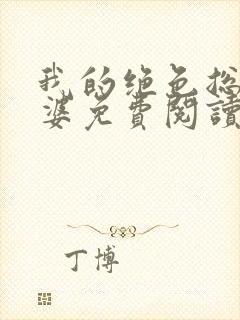 我的绝色总
婆免費閱讀
丁博